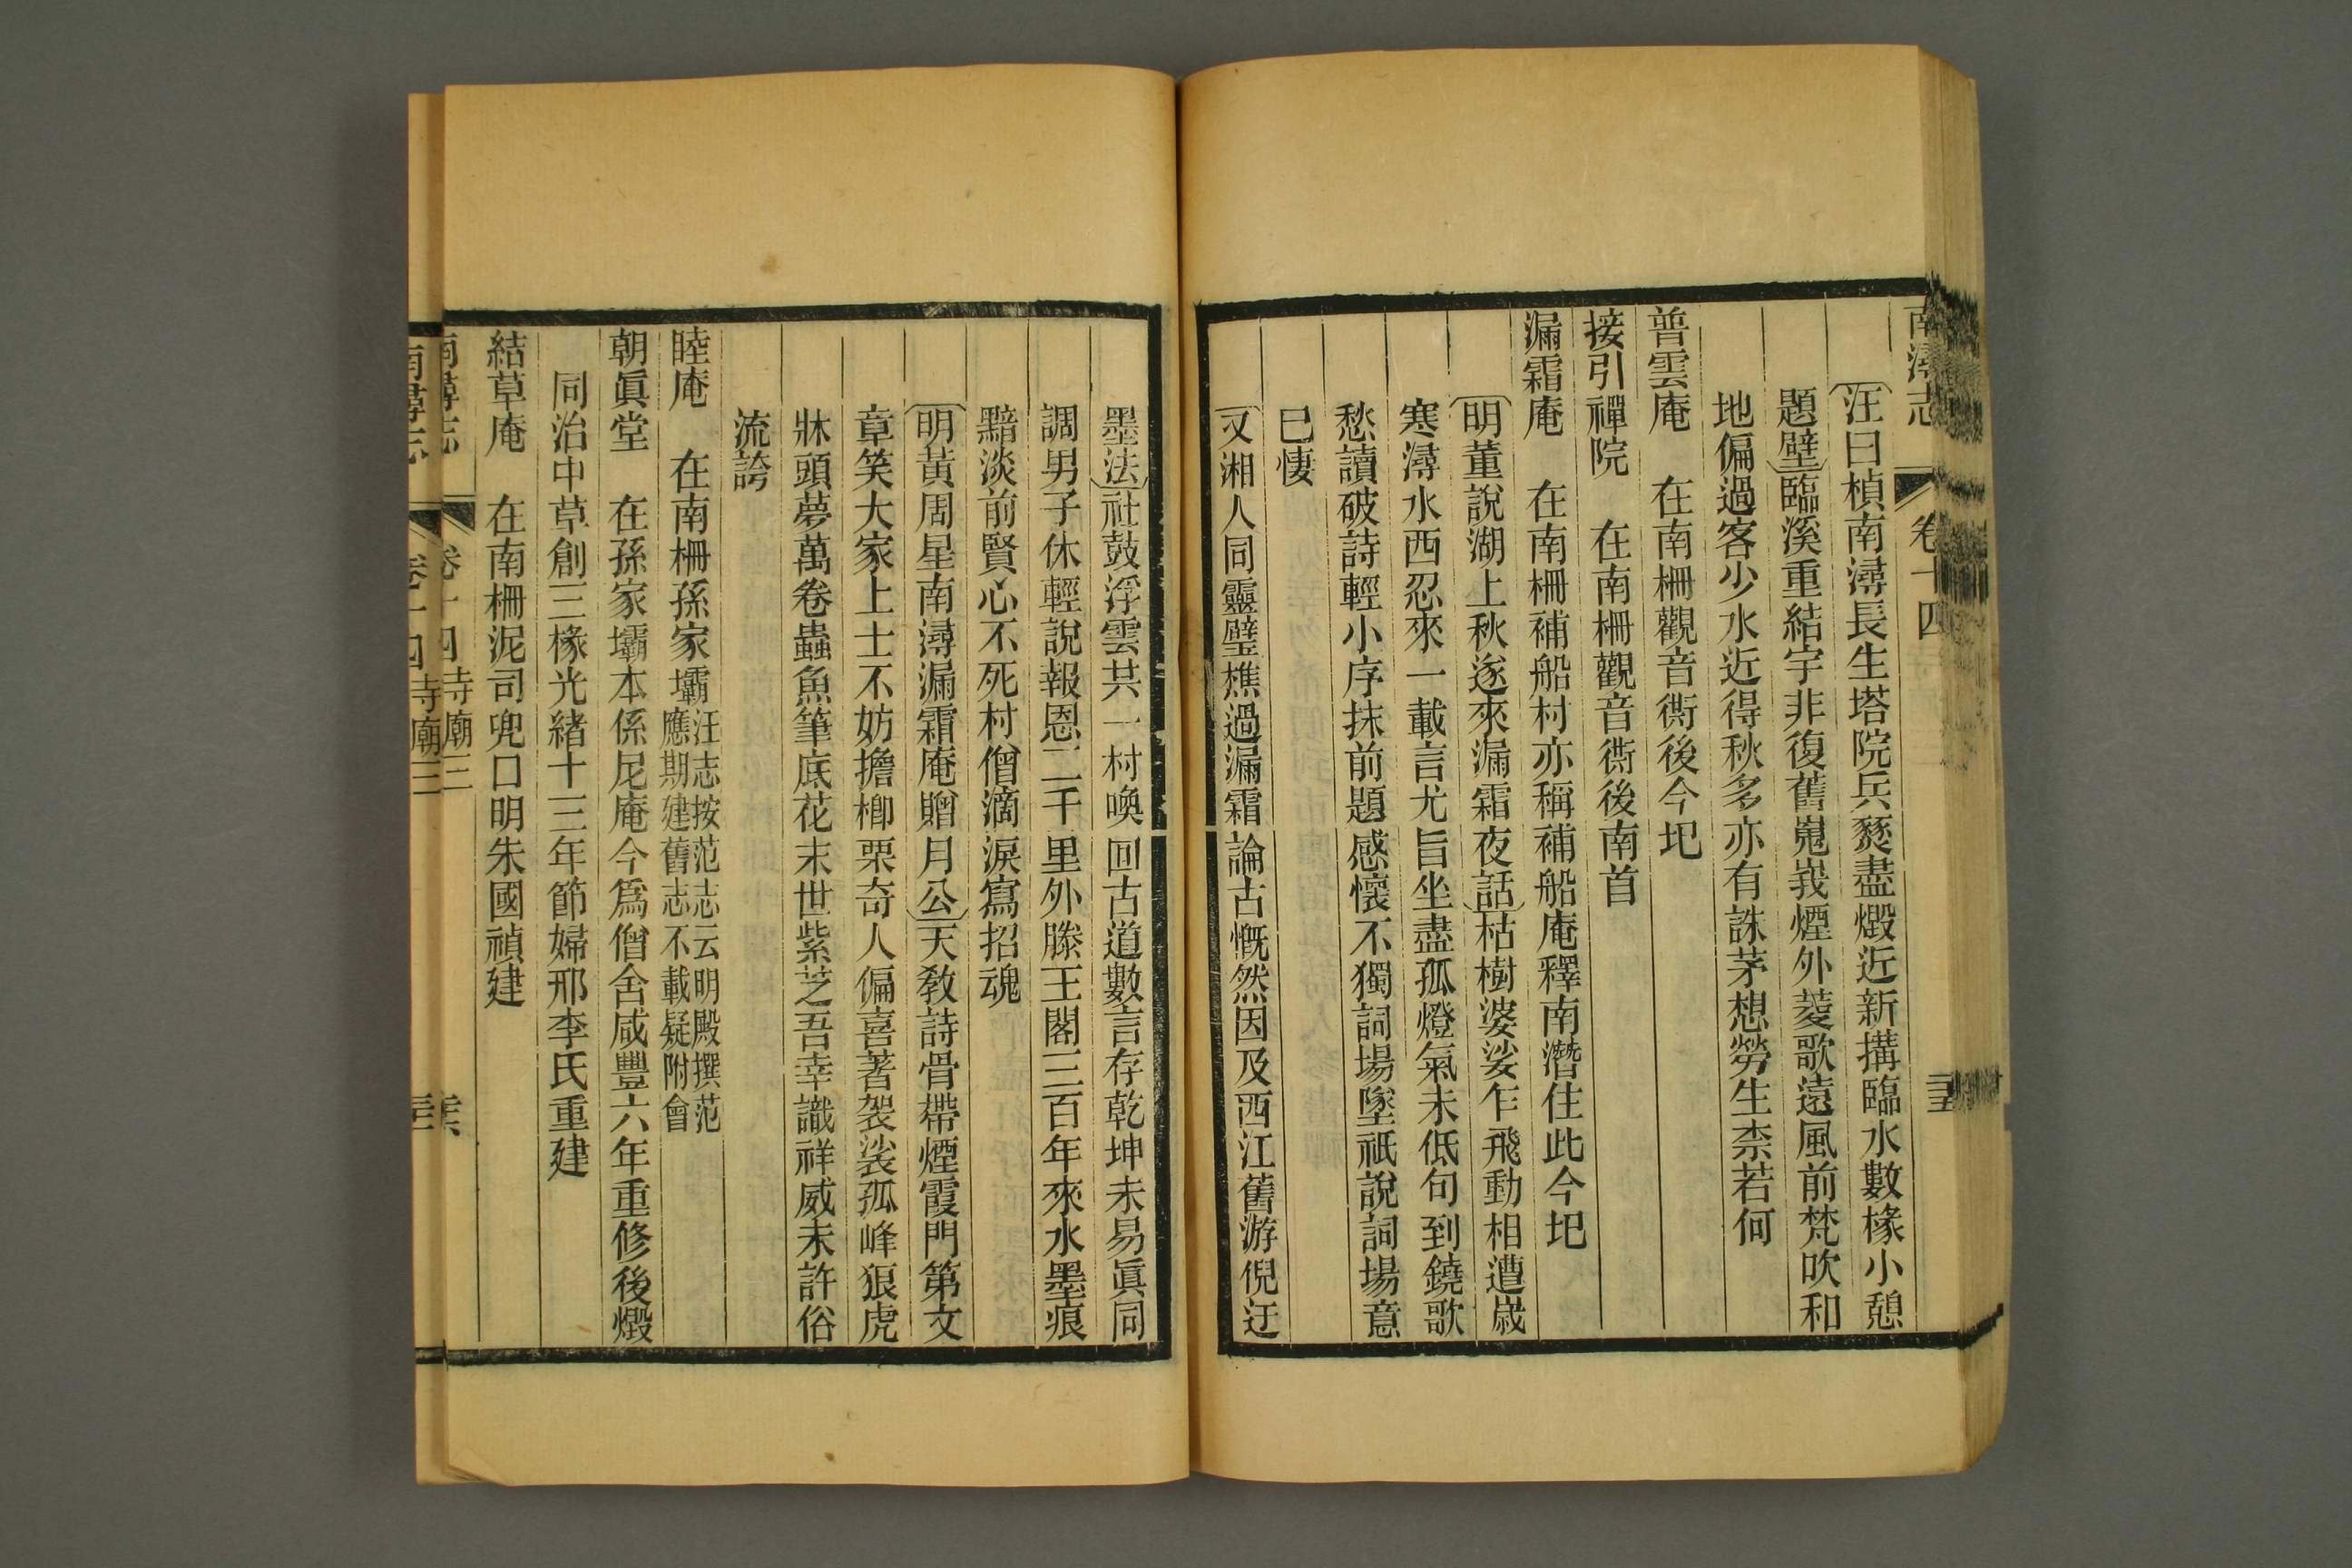 南潯志
卷十四
汪曰楨南潯長生塔院兵燹盡燬近新搆臨水數椽小憩
題壁臨溪重結宇非復舊嵬峩煙外菱歌遠風前梵吹和
地偏過客少水近得秋多亦有誅茅想勞生柰若何
普雲庵 在南柵觀音衖後今圯
接引禪院 在南柵觀音衖後南首
漏霜庵 在南柵補船村亦稱補船庵釋南潛住此今圯
明董說湖上秋遂來漏霜夜話枯樹婆娑乍飛動相遭嵗
寒潯水西忍來一載言尤旨坐盡孤燈氣未低句到鐃歌
愁讀破詩輕小序抹前題感懷不獨詞場墜祇說詞場意
已悽
又湘人同靈璧樵過漏霜論古慨然因及西江舊游倪迂
墨法社鼓浮雲共一村喚回古道數言存乾坤未易眞同
調男子休輕說報恩二千里外滕王閣三百年來水墨痕
黯淡前賢心不死村僧滴淚寫招魂
明黃周星南潯漏霜庵贈月公天敎詩骨帶煙霞門第文
章笑大家上士不妨擔榔栗奇人偏喜著袈裟孤峰狼虎
牀頭夢萬卷蟲魚筆底花末世紫芝吾幸識祥威未許俗
流誇
睦庵 在南柵孫家壩汪志按范志云明殿撰范
應期建舊志不載疑附會
朝眞堂 在孫家壩本係尼庵今爲僧舍咸豐六年重修後燬
同治中草創三椽光緒十三年節婦邢李氏重建
結草庵 在南柵泥司兜口明朱國禎建
南潯志
卷十四 寺廟三
南潯志
卷十四 寺廟三